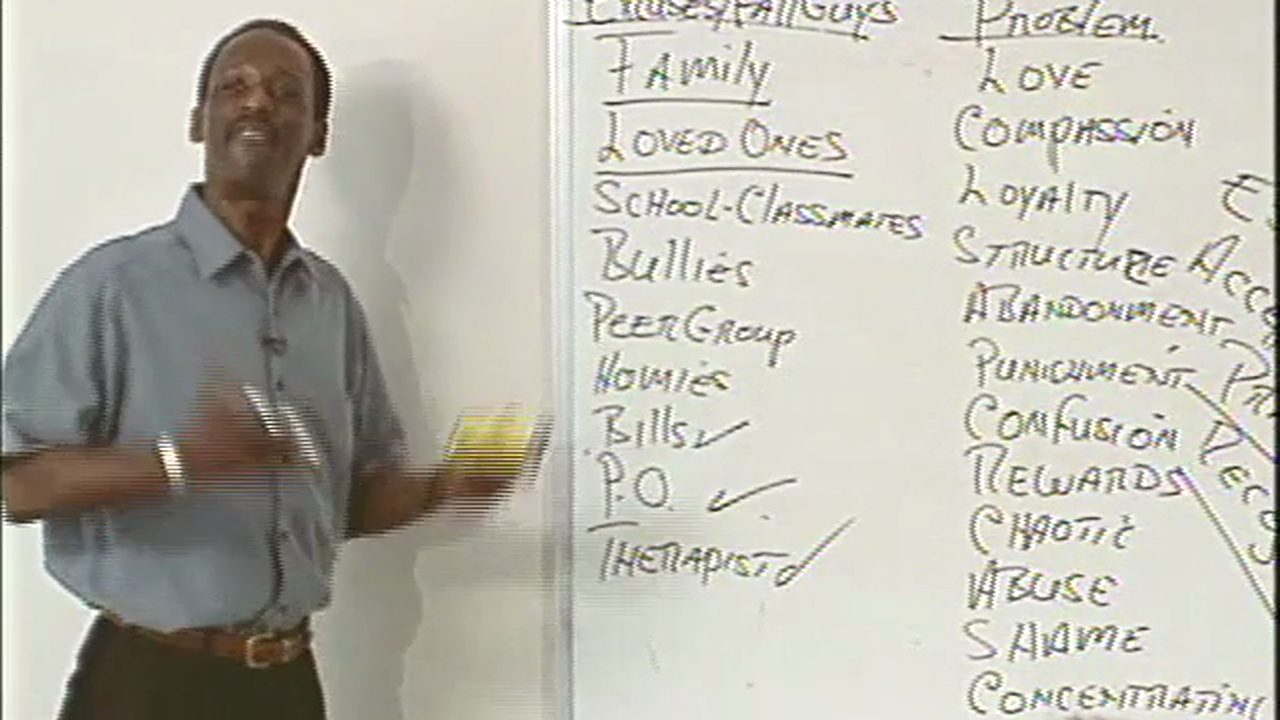 Family
Loved Ones
School-Classmates
Bullies
Peer Group
Homies
Bills
P.O.
Therapist
Problem
Love
Compassion
Loyalty
Structure
Abandonment
Punichment
Confusion
Rewards
Chaotic
Abuse
Shame